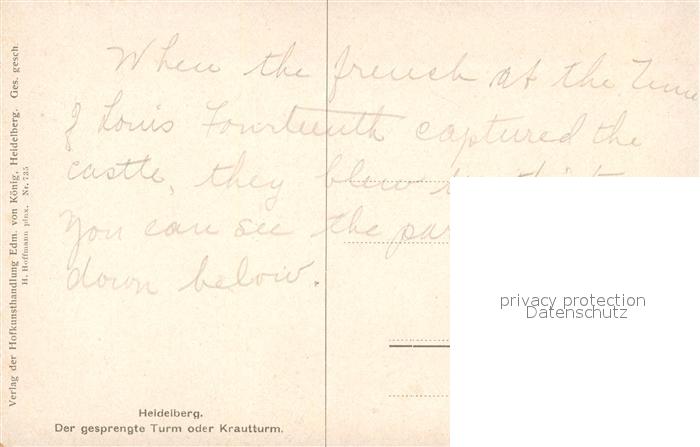 When the french at the Time
of Louis Fourteenth captured the
castle, they blew
You can see the
down below.
Heidelberg.
Der gesprengte Turm oder Krautturm.
Verlag der Hofkunsthandlung Edm. von König, Heidelberg. Ges. gesch.
H. Hoffmann pinx. Nr. 735
privacy protection
Datenschutz